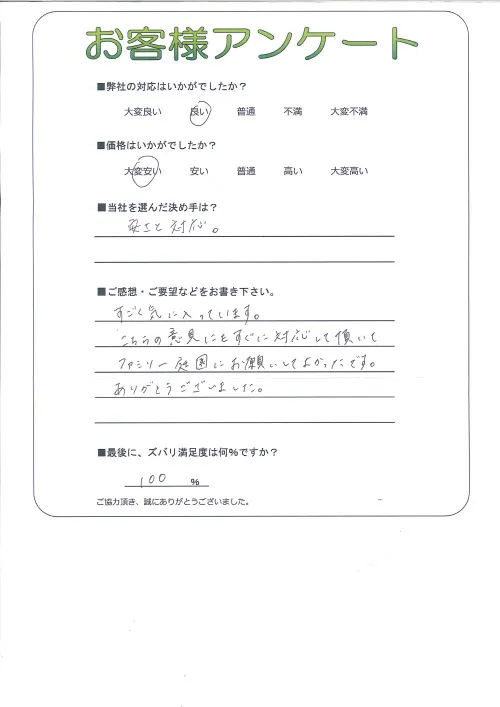 お客様アンケート
■弊社の対応はいかがでしたか？
大変良い 良い 普通 不満 大変不満
■価格はいかがでしたか？
大変安い 安い 普通 高い 大変高い
■当社を選んだ決め手は？
安さと対応。
■ご感想・ご要望などをお書き下さい。
すごく気に入っています。
こちらの意見にもすぐに対応して頂いて
ファミリー庭園にお願いしてよかったです。
ありがとうございました。
■最後に、ズバリ満足度は何％ですか？
100 %
ご協力頂き、誠にありがとうございました。